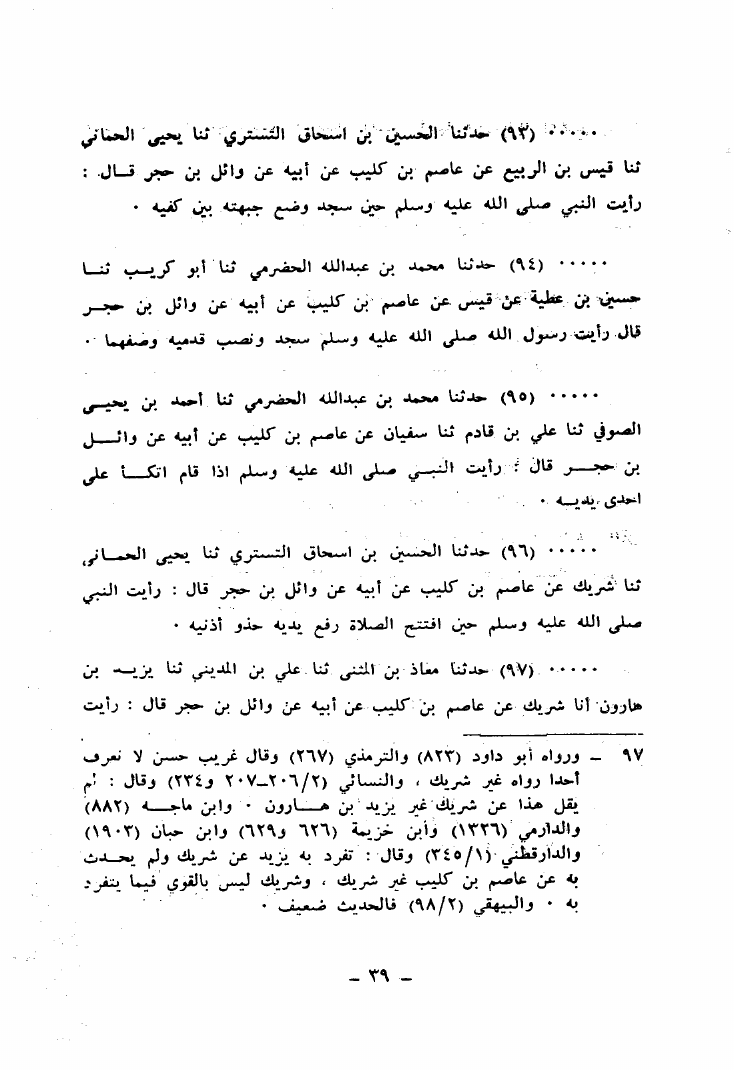 ٠٠٠٠٠ (٩٣) حدثنا الحسين بن اسحاق التستري ثنا يحيى الحماني
ثنا قيس بن الربيع عن عاصم بن كليب عن أبيه عن وائل بن حجر قـال :
رأيت النبي صلى الله عليه وسلم حين سجد وضع جبهته بين كفيه ٠
٠٠٠٠٠ (٩٤) حدثنا محمد بن عبدالله الحضرمي ثنا أبو كريـب ثنـا
حسين بن عطية عن قيس عن عاصم بن كليب عن أبيه عن وائل بن حجـر
قال رأيت رسول الله صلى الله عليه وسلم سجد ونصب قدميه وضفهما ٠
٠٠٠٠٠ (٩٥) حدثنا محمد بن عبدالله الحضرمي ثنا أحمد بن يحيـى
الصوفي ثنا علي بن قادم ثنا سفيان عن عاصم بن كليب عن أبيه عن وائـل
بن حجـر قال : رأيت النبـي صلى الله عليه وسلم اذا قام اتكـأ على
احدى يديـه ٠
٠٠٠٠٠ (٩٦) حدثنا الحسين بن اسحاق التستري ثنا يحيى الحمـاني
ثنا شريك عن عاصم بن كليب عن أبيه عن وائل بن حجر قال : رأيت النبي
صلى الله عليه وسلم حين افتتح الصلاة رفع يديه حذو أذنيه ٠
٠٠٠٠٠ (٩٧) حدثنا معاذ بن المثنى ثنا علي بن المديني ثنا يزيـد بن
هارون أنا شريك عن عاصم بن كليب عن أبيه عن وائل بن حجر قال : رأيت
٩٧ ـ ورواه أبو داود (٨٢٣) والترمذي (٢٦٧) وقال غريب حسن لا نعرف
أحدا رواه غير شريك ، والنسائي (٢٠٦/٢ـ٢٠٧ و٢٣٤) وقال : لم
يقل هذا عن شريك غير يزيد بن هـارون ٠ وابن ماجـه (٨٨٢)
والدارمي (١٣٢٦) وأبن خزيمة (٦٢٦ و٦٢٩) وابن حبان (١٩٠٣)
والدارقطني (٣٤٥/١) وقال : تفرد به يزيد عن شريك ولم يحـدث
به عن عاصم بن كليب غير شريك ، وشريك ليس بالقوي فيما يتفرد
به ٠ والبيهقي (٩٨/٢) فالحديث ضعيف ٠
ـ ٣٩ ـ